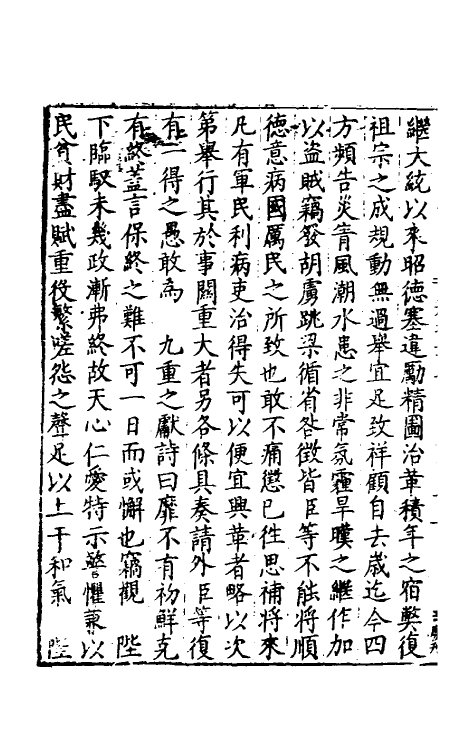 繼大統以來昭德塞違勵精圖治革積年之宿弊復
祖宗之成規動無過舉宜足致祥顧自去歲迄今四
方頻告災眚風潮水患之非常氛霾旱暵之繼作加
以盜賊竊發胡虜跳梁循省咎徵皆臣等不能將順
德意病國厲民之所致也敢不痛懲已徃思補將來
凡有軍民利病吏治得失可以便宜興革者略以次
第舉行其於事關重大者另各條具奏請外臣等復
有一得之愚敢為　九重之獻詩曰靡不有初鮮克
有終蓋言保終之難不可一日而或懈也竊觀　陛
下臨馭未幾政漸弗終故天心仁愛特示警懼兼以
民貧財盡賦重役繁嗟怨之聲足以上干和氣　陛